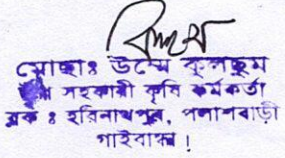 মোছাঃ উম্মে কুলছুম
সহকারী কৃষি কর্মকর্তা
ব্লক ঃ হরিনাথপুর, পলাশবাড়ী
গাইবান্ধা।